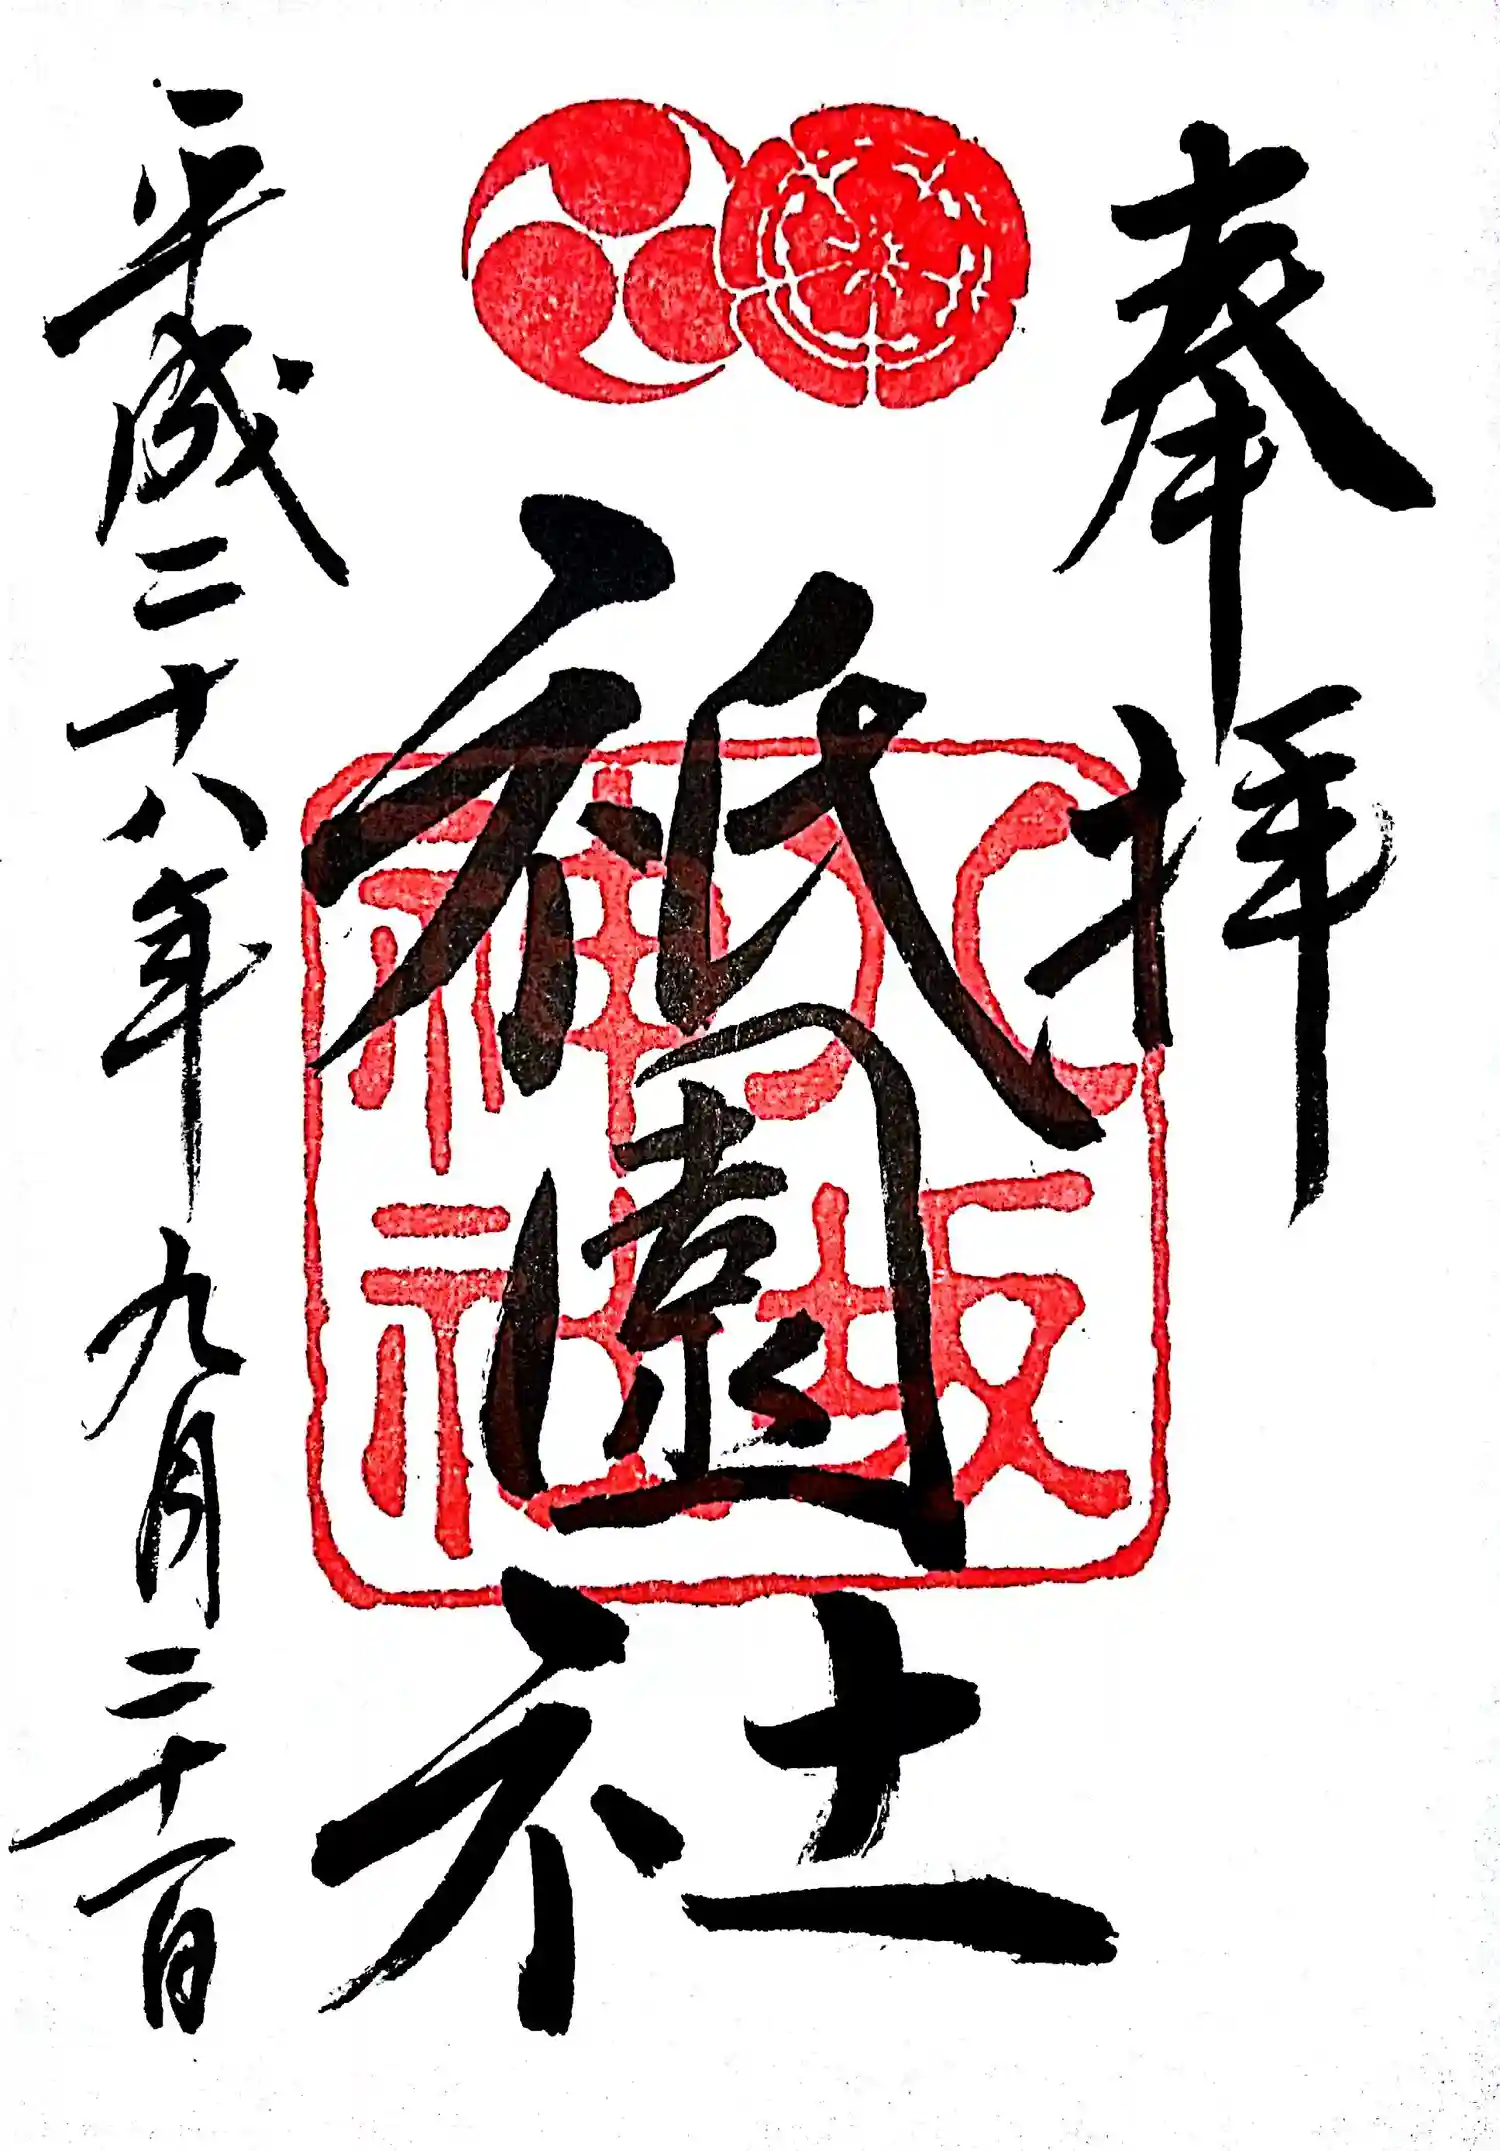 奉拝
祇園社
八坂
神社
平成二十八年九月二十一日